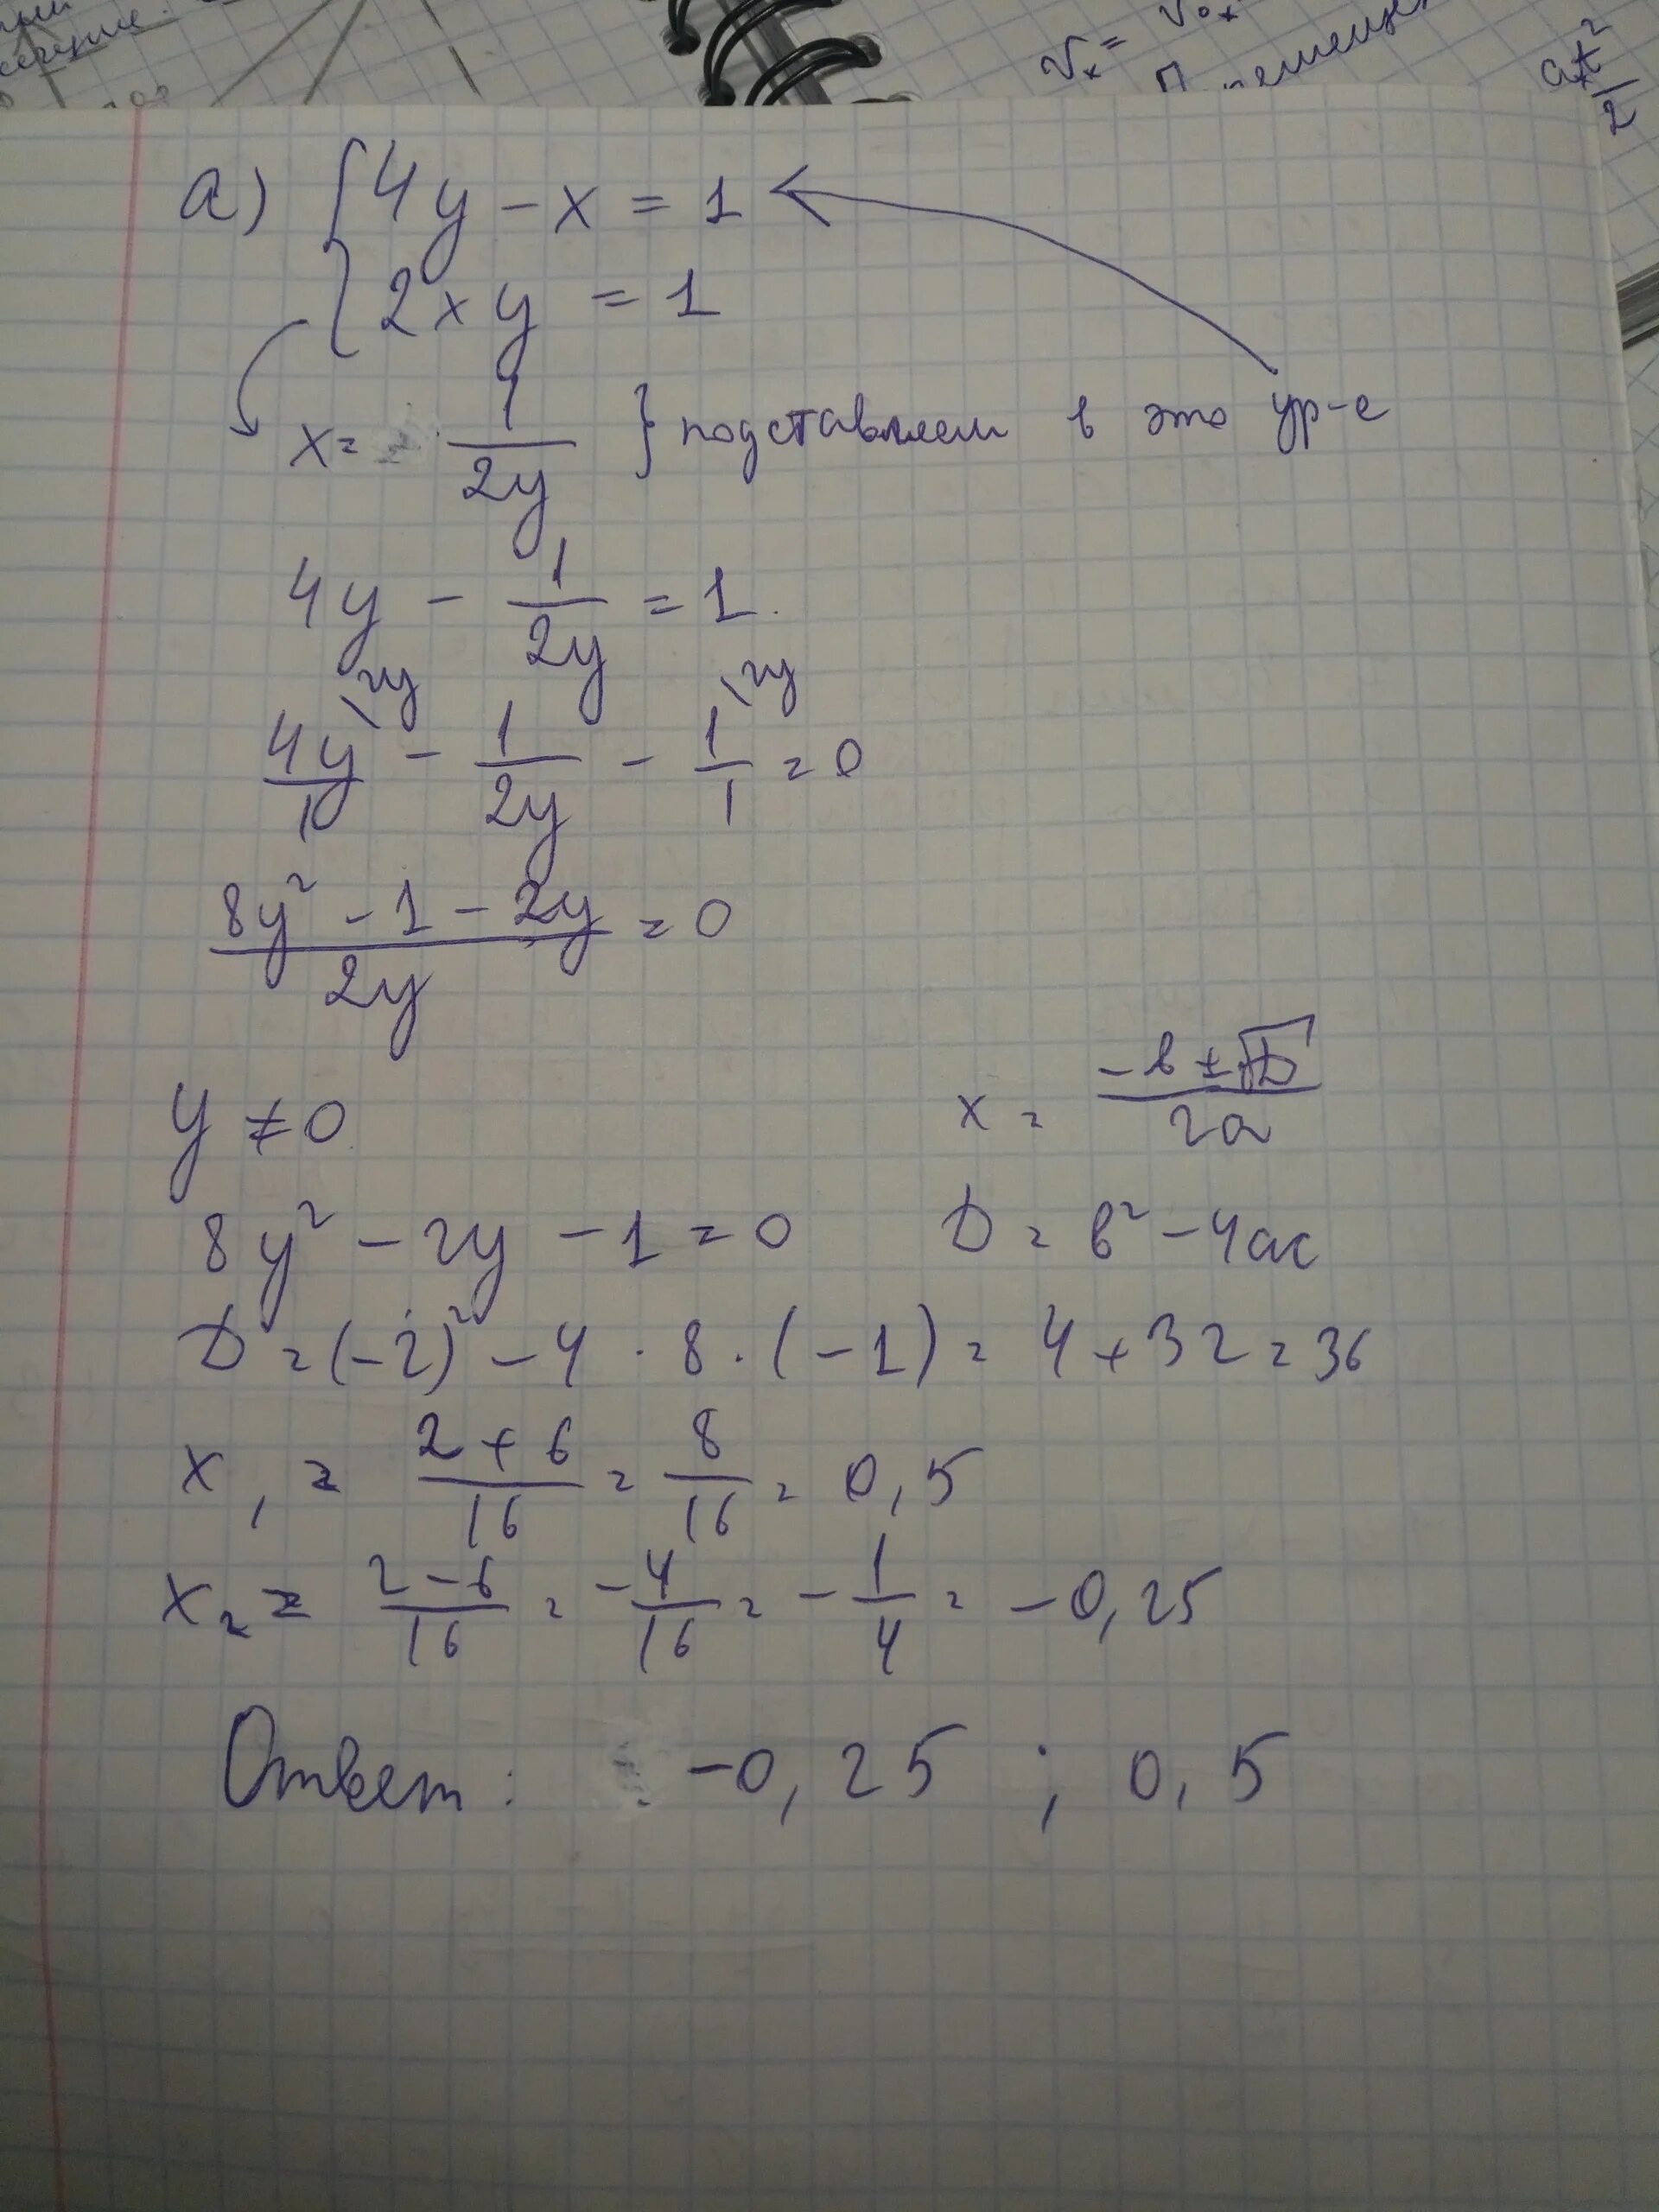 сечение.
Vₓ = V₀ₓ
aₓt²/2
а) { 4y - x = 1
2xy = 1
x = 1/2y } подставляем в это ур-е
4y - 1/2y = 1.
4y/1 \2y - 1/2y - 1/1 \2y = 0
(8y² - 1 - 2y)/2y = 0
y ≠ 0
x = (-b ± √D)/2a
8y² - 2y - 1 = 0
D = b² - 4ac
D = (-2)² - 4 · 8 · (-1) = 4 + 32 = 36
x₁ = (2 + 6)/16 = 8/16 = 0,5
x₂ = (2 - 6)/16 = -4/16 = -1/4 = -0,25
Ответ: -0,25 ; 0,5